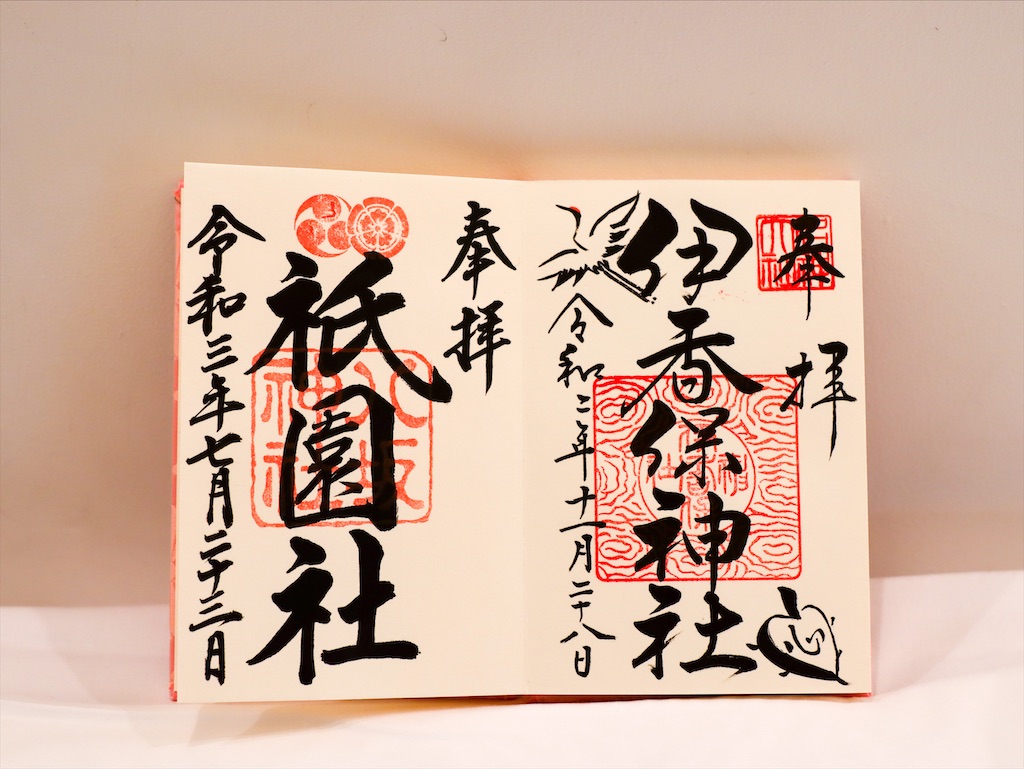 奉拝
伊香保神社
令和二年十一月二十八日
奉拝
祇園社
八坂神社
令和三年七月二十三日